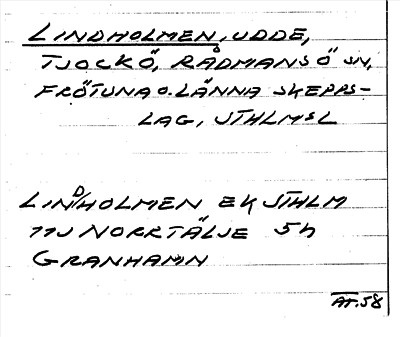 LINDHOLMEN, UDDE,
TJOCKÖ, RÅDMANSÖ SN,
FRÖTUNA O. LÄNNA SKEPPS-
LAG, STHLMSL
LIND/HOLMEN EK STHLM
11J NORRTÄLJE 5h
GRANHAMN
AT.58